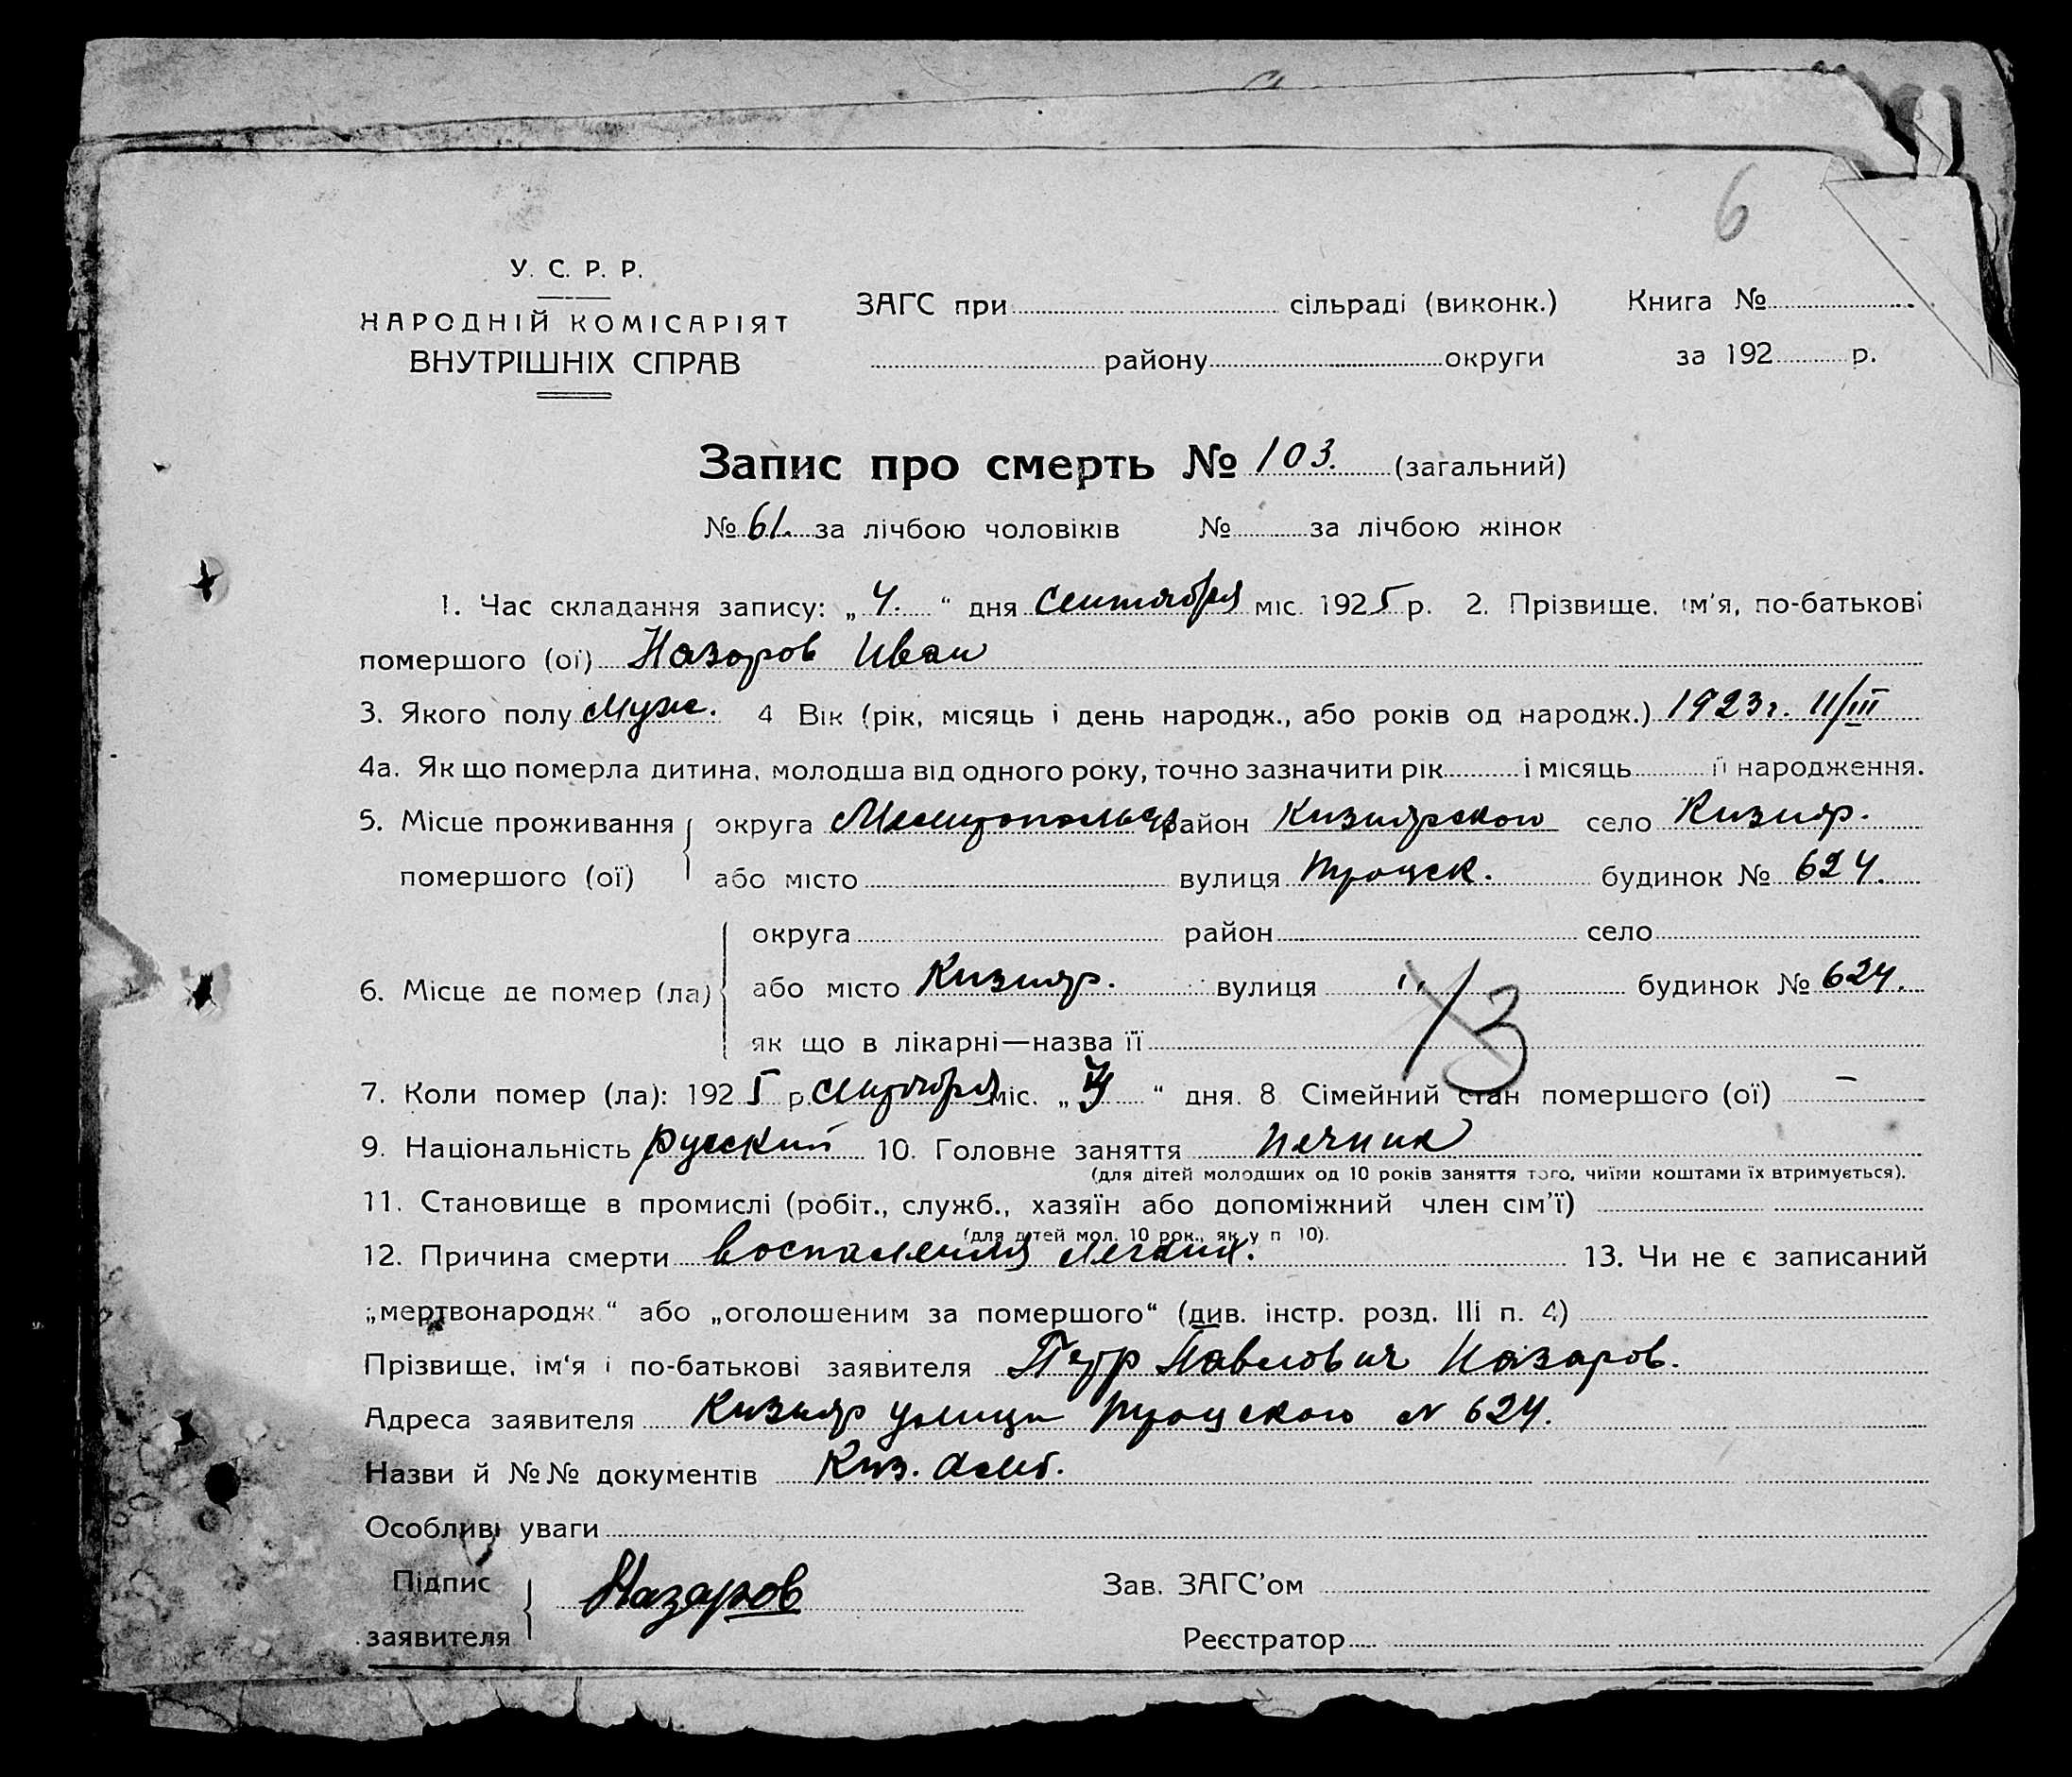 6
У. С. Р. Р.
НАРОДНІЙ КОМІСАРІЯТ
ВНУТРІШНІХ СПРАВ
ЗАГС при сільраді (виконк.) Книга №
району округи за 192 р.
Запис про смерть № 103. (загальний)
№ 61. за лічбою чоловіків № за лічбою жінок
1. Час складання запису: „ 4. “ дня сентября міс. 1925 р. 2. Прізвище, ім'я, по-батькові
помершого (ої) Назаров Иван
3. Якого полу Муж. 4 Вік (рік, місяць і день народж., або років од народж.) 1923 г. 11/III
4а. Як що померла дитина, молодша від одного року, точно зазначити рік і місяць її народження.
5. Місце проживання округа район Кизиярского село Кизияр.
помершого (ої) або місто вулиця Троцск. будинок № 624.
округа район село
6. Місце де помер (ла) або місто Кизияр. вулиця „ будинок № 624.
як що в лікарні—назва її
13
7. Коли помер (ла): 1925 р. сентября міс. „ “ дня. 8 Сімейний стан помершого (ої) —
9. Національність русский 10. Головне заняття печник
(для дітей молодших од 10 років заняття того, чиїми коштами їх втримується).
11. Становище в промислі (робіт., служб., хазяїн або допоміжний член сім'ї)
(для дітей мол. 10 рок., як у п 10).
12. Причина смерти воспаления легких. 13. Чи не є записаний
„мертвонародж.“ або „оголошеним за помершого“ (див. інстр. розд. III п. 4)
Прізвище, ім'я і по-батькові заявителя Петр Павлович Назаров.
Адреса заявителя Кизияр улица Троцского № 624.
Назви й №№ документів Киз. амб.
Особливі уваги
Підпис
заявителя Назаров
Зав. ЗАГС'ом
Реєстратор